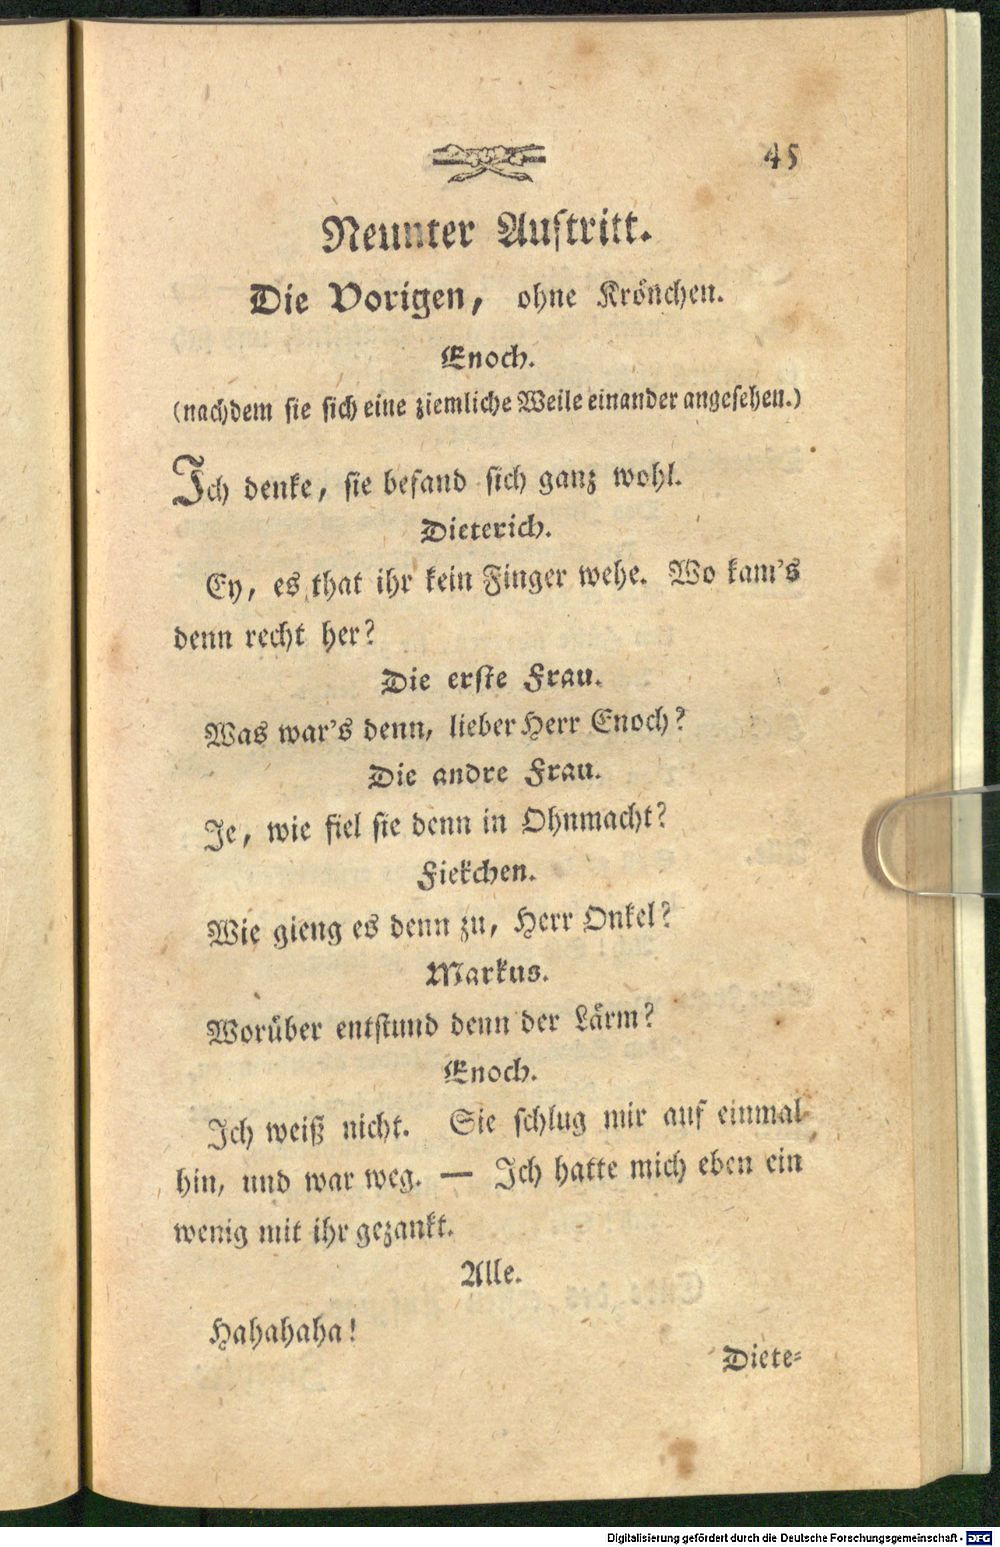 45
Neunter Auftritt.
Die Vorigen, ohne Krönchen.
Enoch.
(nachdem sie sich eine ziemliche Weile einander angesehen.)
Ich denke, sie befand sich ganz wohl.
Dieterich.
Ey, es that ihr kein Finger wehe. Wo kam's
denn recht her?
Die erste Frau.
Was war's denn, lieber Herr Enoch?
Die andre Frau.
Je, wie fiel sie denn in Ohnmacht?
Fiekchen.
Wie gieng es denn zu, Herr Onkel?
Markus.
Worüber entstund denn der Lärm?
Enoch.
Ich weiß nicht. Sie schlug mir auf einmal
hin, und war weg. — Ich hatte mich eben ein
wenig mit ihr gezankt.
Alle.
Hahahaha!
Diete-
Digitalisierung gefördert durch die Deutsche Forschungsgemeinschaft - DFG